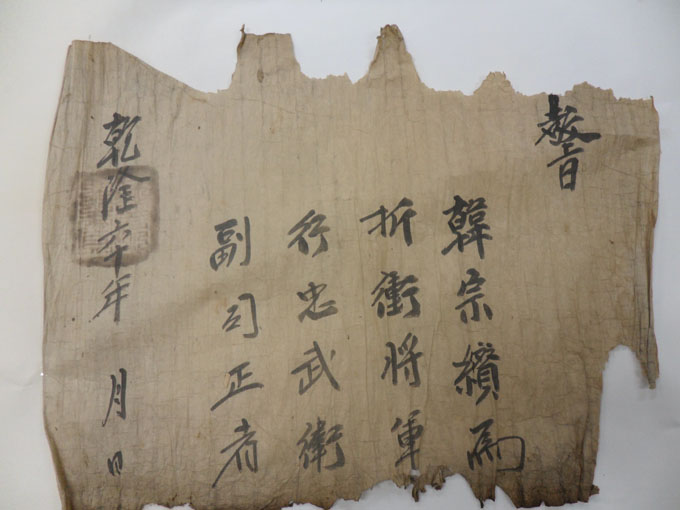 敎旨
韓宗纘爲
折衝將軍
行忠武衛
副司正者
乾隆六十年 月 日